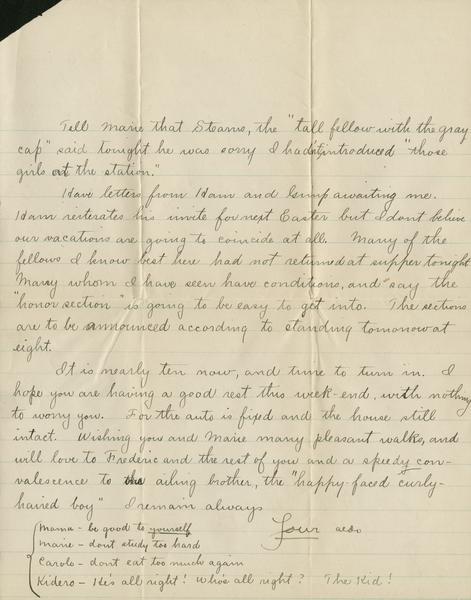 Tell Marie that Stearns, the "tall fellow with the gray
cap" said tonight he was sorry I hadn't introduced "those
girls at the station."
Have letters from Ham and Gimp awaiting me.
Ham reiterates his invite for next Easter but I dont belive
our vacations are going to coincide at all. Many of the
fellows I know best here had not returned at supper tonight
Many whom I have seen have conditions, and say the
"honor section" is going to be easy to get into. The sections
are to be announced according to standing tomorrow at
eight.
It is nearly ten now, and time to turn in. I
hope you are having a good rest this week-end, with nothing
to worry you. For the auto is fixed and the house still
intact. Wishing you and Marie many pleasant walks, and
will love to Frederic and the rest of you and a speedy con-
valescence to the ailing brother, the "happy-faced curly-
haired boy" I remain always
Your
Mama - be good to yourself
Marie - dont study too hard
Carolo - dont eat too much again
Kidero - He's all right! Who's all right? The Kid!